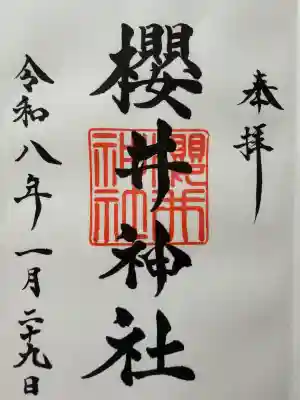 奉拝
櫻井神社
櫻井
神社
令和八年一月二十九日